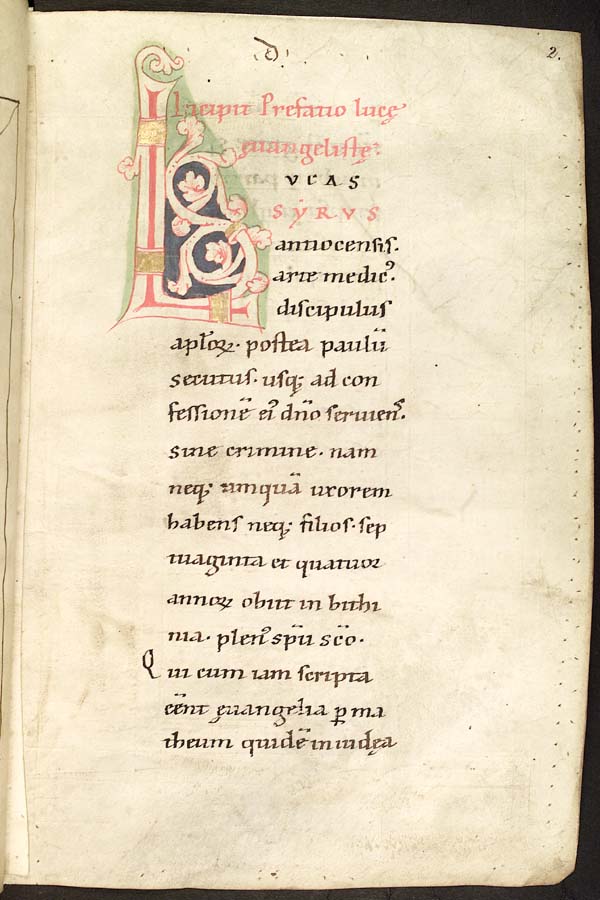 2.
Incipit Prefatio lucę
ęuangelistę:
LVCAS
SYRVS
antiocensis.
arte medicꝰ.
discipulus
apl̄oꝝ. postea paulū
secutus. usq; ad con
fessionē eiꝰ dn̄o seruienˢ.
sine crimine. nam
neq; umquā uxorem
habens neq; filios. sep
tuaginta et quatuor
annoꝝ obiit in bithi
nia. plenꝰ sp̄u sc̄o.
Qui cum iam scripta
eēnt ęuangelia ꝑ ma
theum quidē in iudęa